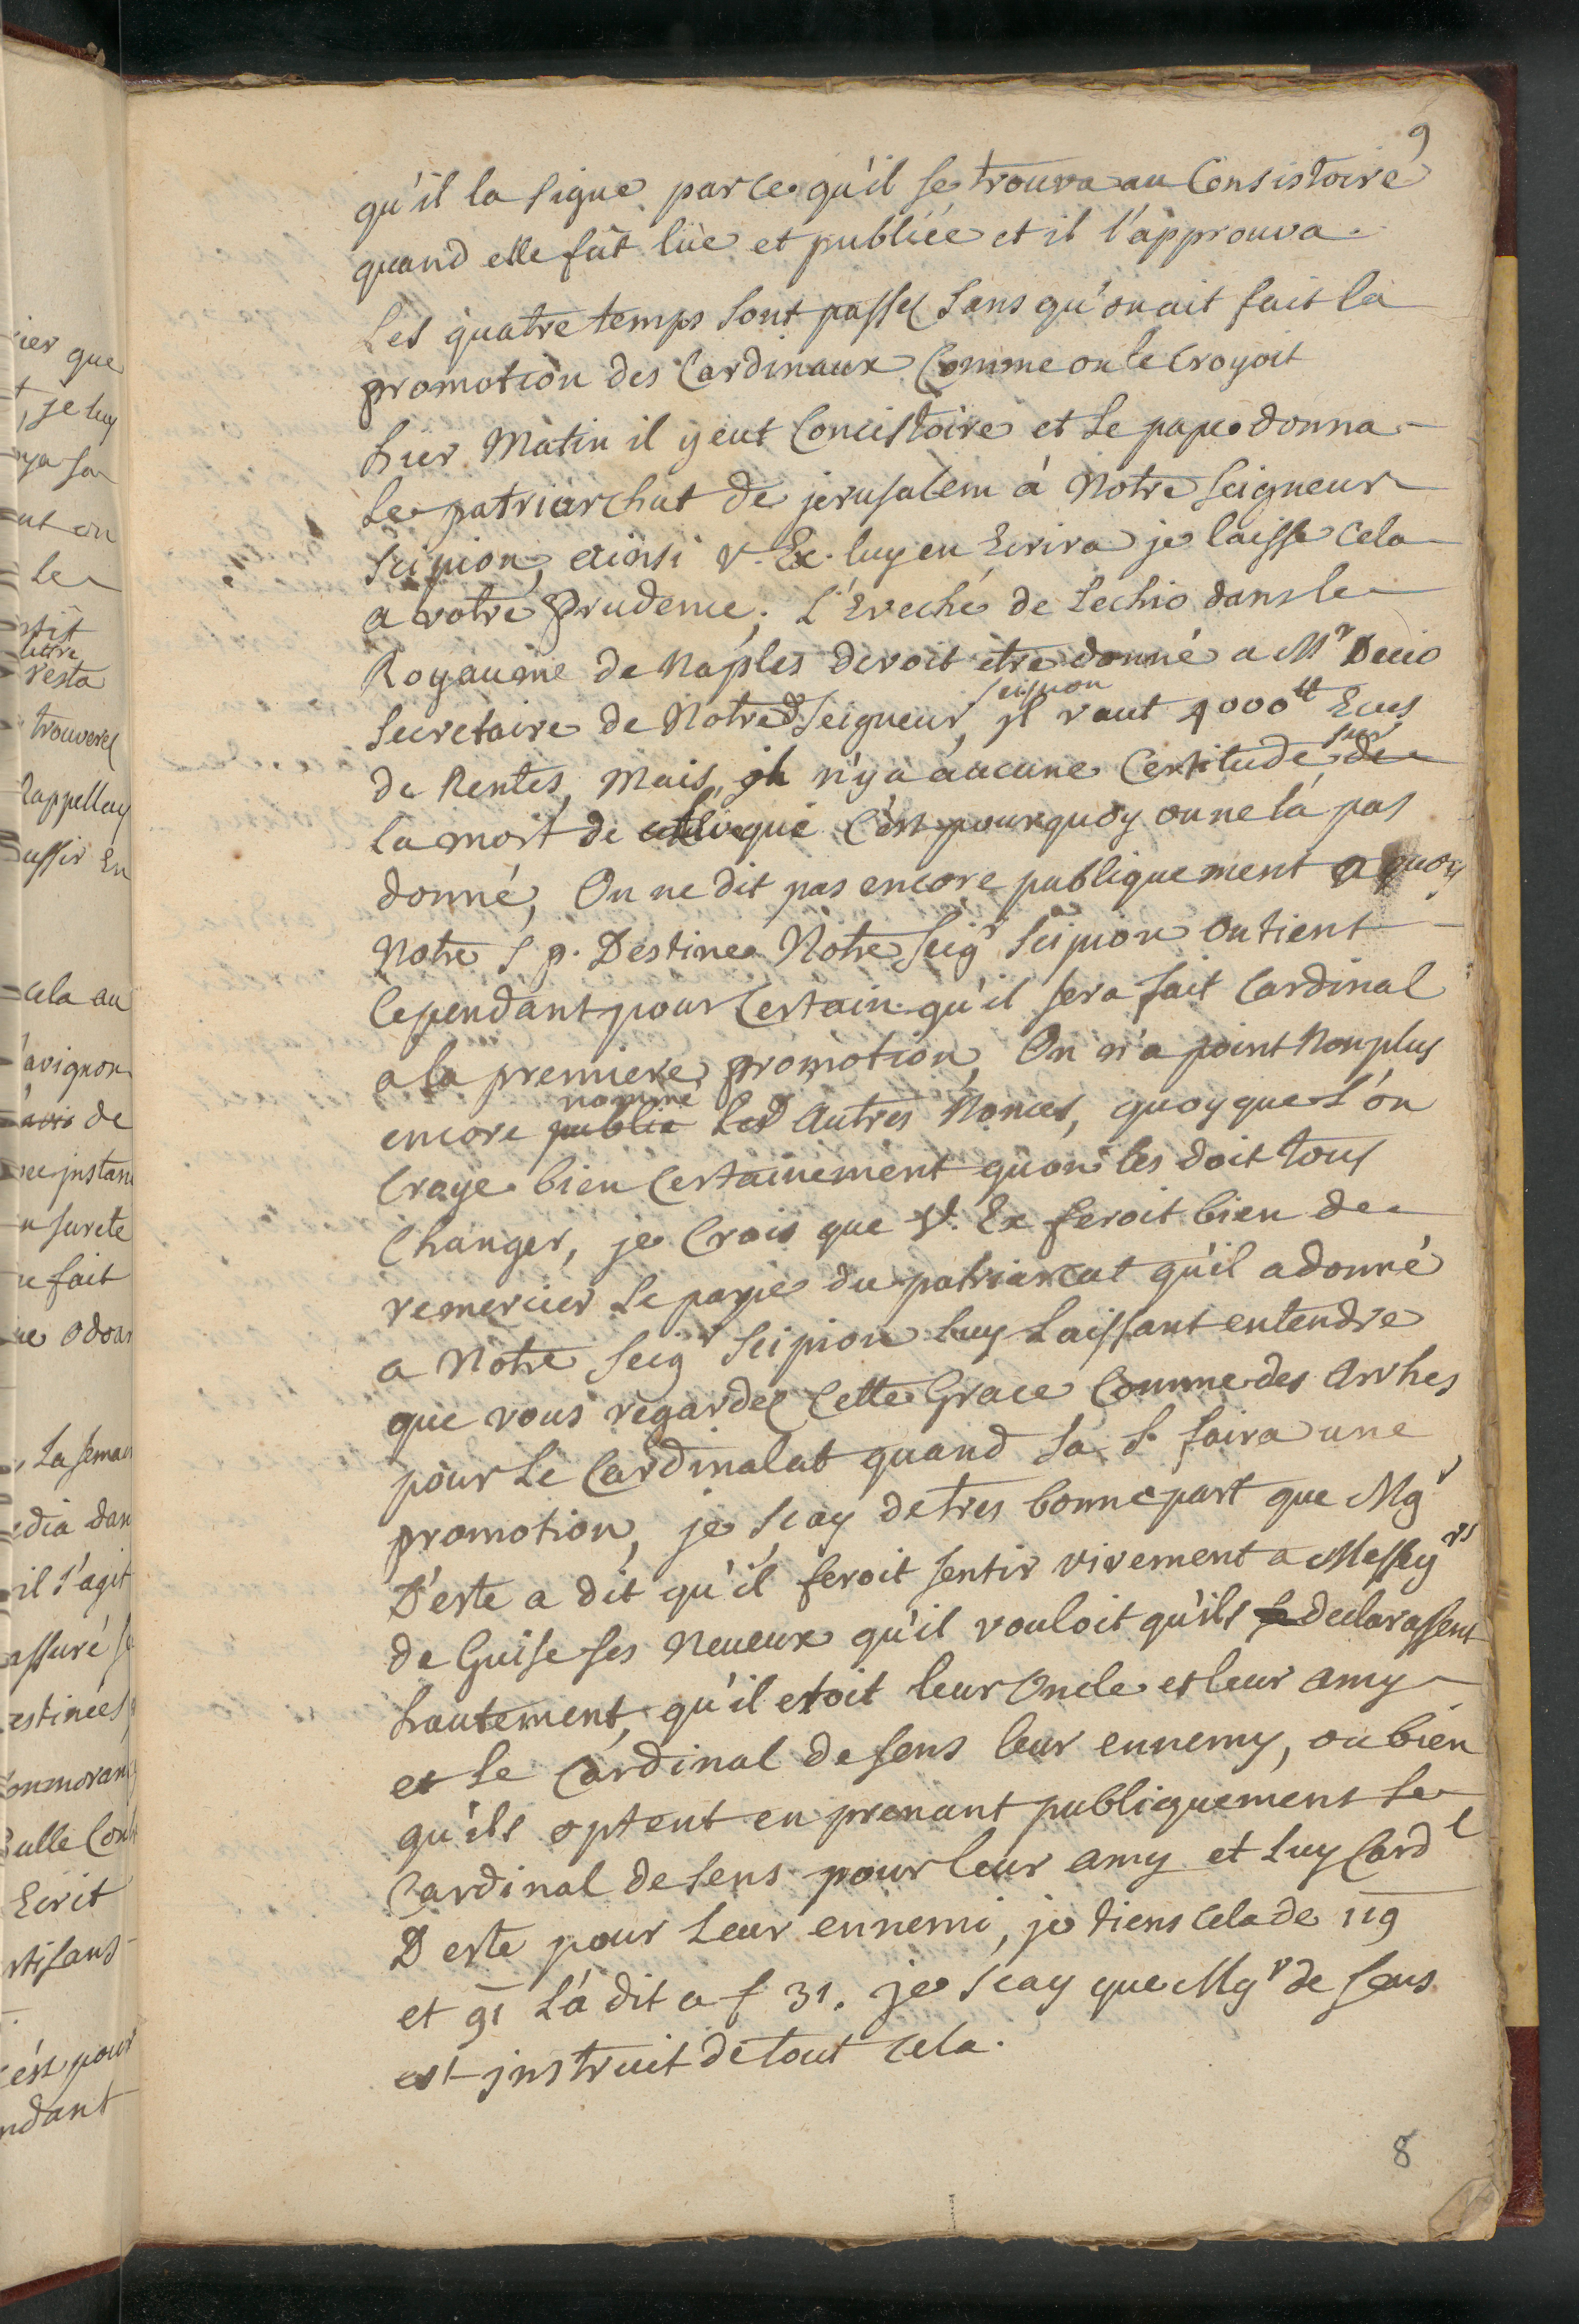 9
qu'il la signe parce qu'il se trouva au Consistoire
quand elle fût lüe et publiée et il l'approuva.
Les quatre temps sont passez sans qu'on ait fait la
promotion des Cardinaux Comme on le Croyoit
hier Matin il y eut Concistoire et Le pape donna
Le patriarchat de jerusalem à Notre Seigneur
Scipion, ainsi V. Ex. luy en Ecrira je laisse Cela
a votre Prudence. L'Eveché de Lechio dans le
Royaume de Naples devoit etre donné a Mr Decio
Scipion
Secretaire de Notred Seigneur, il vaut 4000tt Ecus
sur
de Rentes, Mais, il n'y a aucune Certitude, de
la mort de l'eveque C'est pourquoy on ne l'a pas
donné, On ne dit pas encore publiquement a quoy
Notre S p. Destine Notre Seigr Scipion on tient
Cependant pour Certain qu'il sera fait Cardinal
a la premiere promotion, On n'a point Non plus
nommé
encore publié Les Autres Nonces, quoyque L'on
Croye bien Certainement qu'on les doit tous
Changer, je Crois que V. Ex feroit bien de
remercier Le pape du patriarcat qu'il a donné
a Notre Seigr Scipion luy Laissant entendre
que vous regardez Cette Grace Comme des Arrhes
pour Le Cardinalat quand Sa S. faira une
promotion, je scay de tres bonne part que Mgr
D'este a dit qu'il feroit sentir vivement a Messgrs
de Guise ses Neueux qu'il vouloit qu'ils se declarassent
hautement, qu'il etoit leur Oncle et leur amy
et Le Cardinal de sens leur ennemy, ou bien
qu'ils optent en prenant publiquement Le
Cardinal de sens pour leur amy et Luy Cardl
D'este pour Leur ennemi, je tiens cela de 119
et 91 L'a dit a f 31. je scay que Mgr de sens
est instruit de tout cela.
8